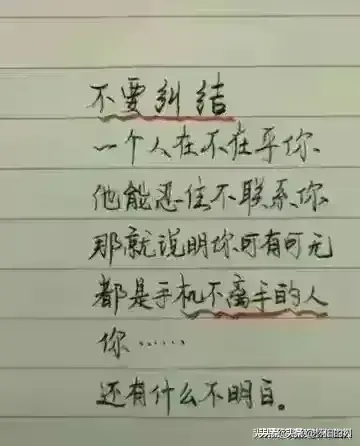 不要纠结
一个人在不在乎你
他能忍住不联系你
那就说明你可有可无
都是手机不离手的人
你……
还有什么不明白。